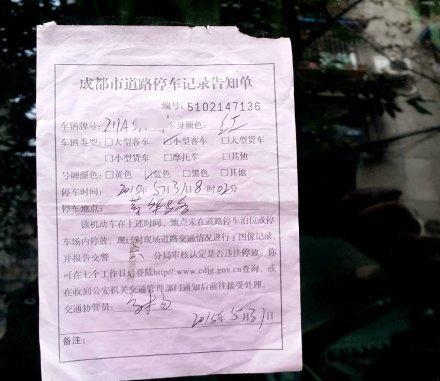 成都市道路停车记录告知单
编号: 5102147136
车辆牌号: 川A 车身颜色: 红
车辆类型: □大型客车 ☑小型客车 □大型货车
□小型货车 □摩托车 □其他
号牌颜色: □黄色 ☑蓝色 □黑色 □其他
停车时间: 2015年5月31日8时02分
停车地点:
该机动车在上述时间、地点未在道路停车泊位或停
车场内停放，现已对现场道路交通情况进行了图像记录，
并报告交警 六 分局审核认定是否违法停放。你
可在七个工作日后登陆http//:www.cdjg.gov.cn查询，或
在收到公安机关交通管理部门通知后前往接受处理。
交通协管员:
2015年5月31日
备注: